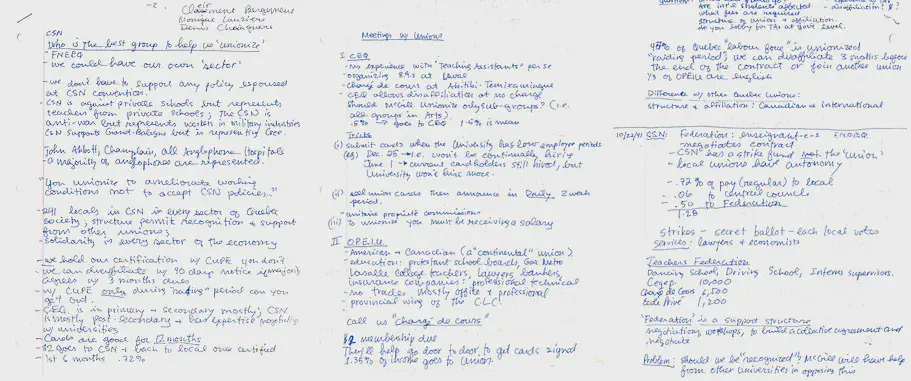 -2-
Clairmont Bergeron
Monique Lauzière
Denis Choinière
CSN
Who is the best group to help us 'unionize'
"FNEEQ"
- we could have our own 'sector'
- we don't have to support any policy espoused
at CSN convention.
- CSN is against private schools but represents
teachers from private schools; the CSN is
anti-war but represents workers in Military industries
CSN supports Grand-Baleine but is representing Cree.
John Abbott, Champlain, all Anglophone Hospitals
- a majority of anglophones are represented.
"You unionize to ameliorate working
conditions (not to accept CSN policies."
- 2411 locals in CSN in every sector of Quebec
society; structure permit recognition & support
from other unions;
- Solidarity in every sector of the economy
- we hold our certification w/ CUPE you don't
- we can disaffiliate w/ 90 day notice if majority
agrees w/ 3 months dues
- w/ CUPE only during "raiding" period can you
get out.
- CEQ is in primary & secondary mostly; CSN
is mostly post-secondary & has expertise negotiating
w/ universities
- Cards are good for 12 months
- $2 goes to CSN & back to local once certified
- 1st 6 months .72%
Meetings w/ Unions
I. CEQ
- No experience with "Teaching Assistants" per se
- organizing RAs at Laval
- Chargé de cours at Abitibi-Temiscamingue
- CEQ allows disaffiliation at no charge
Should McGill Unionize only sub-groups? (i.e.
all groups in Arts).
.5% → goes to CEQ 1.5% is mean
Tricks
(i) submit cards when the University has low employee periods
(eg) Dec. 25 → i.e. won't be continually hiring
June 1 → current cardholders still hired, but
University won't hire more.
(ii) sell union cards then announce in Daily 2 week
period.
- unitaire propriété commission
(iii) To unionize you must be receiving a salary
II O.P.E.I.U.
- American & Canadian (a "continental" union)
- education: protestant school boards, Gaz Metro
Lasalle College teachers, lawyers, bankers,
insurance companies: professional technical
- no trades mostly office & professional
- provincial wing of the C.L.C.
call us "chargé de cours"
$2 membership due
They'll help go door to door to get cards signed
1.35% of income goes to Union.
Are int'l students affected - disaffiliation: $?
what fees are required
structure of union & affiliation
do you lobby for TAs at Gov't level.
40% of Quebec "labour force" is unionized
"raiding period"; we can disaffiliate 3 months before
the end of the contract or join another union
⅓ of OPEIU are English
Difference w/ other Quebec Unions:
structure & affiliation: Canadian & International
10/22/91 CSN: Federation: enseignant-e-s FNEEQ
- negotiates contract
- CSN has a strike fund not the 'union'
- local unions have autonomy
- .72% of pay (regular) to local
- .06 to central councils
- .50 to Federation
1.28
strikes - secret ballot - each local votes
services: lawyers & economists
Teachers Federation
Dancing School, Driving School, Interns supervisors.
Cegep 10,000
Chargé de Cours 6,500
Ecole Privé 1,200
'Federation' is a support structure
negotiations, workshops, to build a collective agreement and
negotiate
Problem: should we be "recognized"; McGill will have help
from other Universities in opposing this